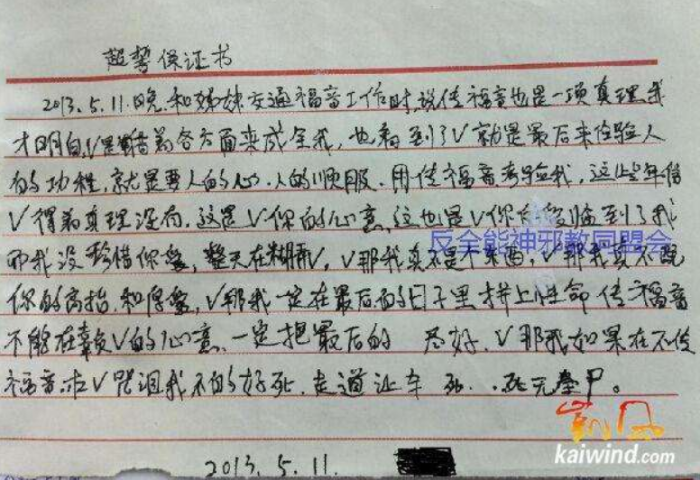 起誓保证书
2013.5.11.晚.和姊妹交通福音工作时,说传福音也是一项真理.我
才明白,V是借着各方面来成全我,也看到了V就是最后来检验人
的功程,就是要人的心.人的顺服.用传福音考验我,这些年信
V得着真理没有.这是V你的心意.这也是V你临到了我
反全能神邪教同盟会
而我没珍惜你爱,整天在糊弄V.V那我真不是个东西.V那我真不配
你的高抬.和厚爱,V那我一定在最后的日子里拼上性命传福音
不能在辜负V的心意.一定把最后的 尽好.V那我如果在不传
福音.求V咒诅我不的好死.走道让车 死..死无全尸。
2013.5.11.
凯风
kaiwind.com